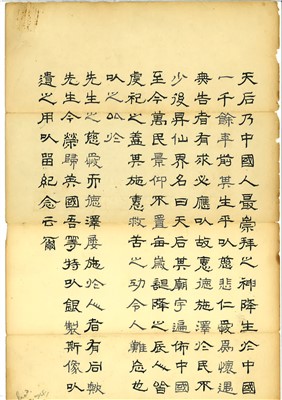 天后乃中國人最崇拜之神降生於中國
一千餘年前其生平以慈悲仁愛為懷遇
無告者有求必應以故惠德施澤於民不
少後昇仙界名曰天后其廟宇遍佈中國
至今萬民景仰不置每歲誕降之辰人皆
虔祀之蓋其施惠救苦之功令人難忘也
以之比於
先生之慈愛而德澤屢施於人者有同轍
先生今榮歸英國吾等特以銀製斯像以
遺之用以留紀念云爾